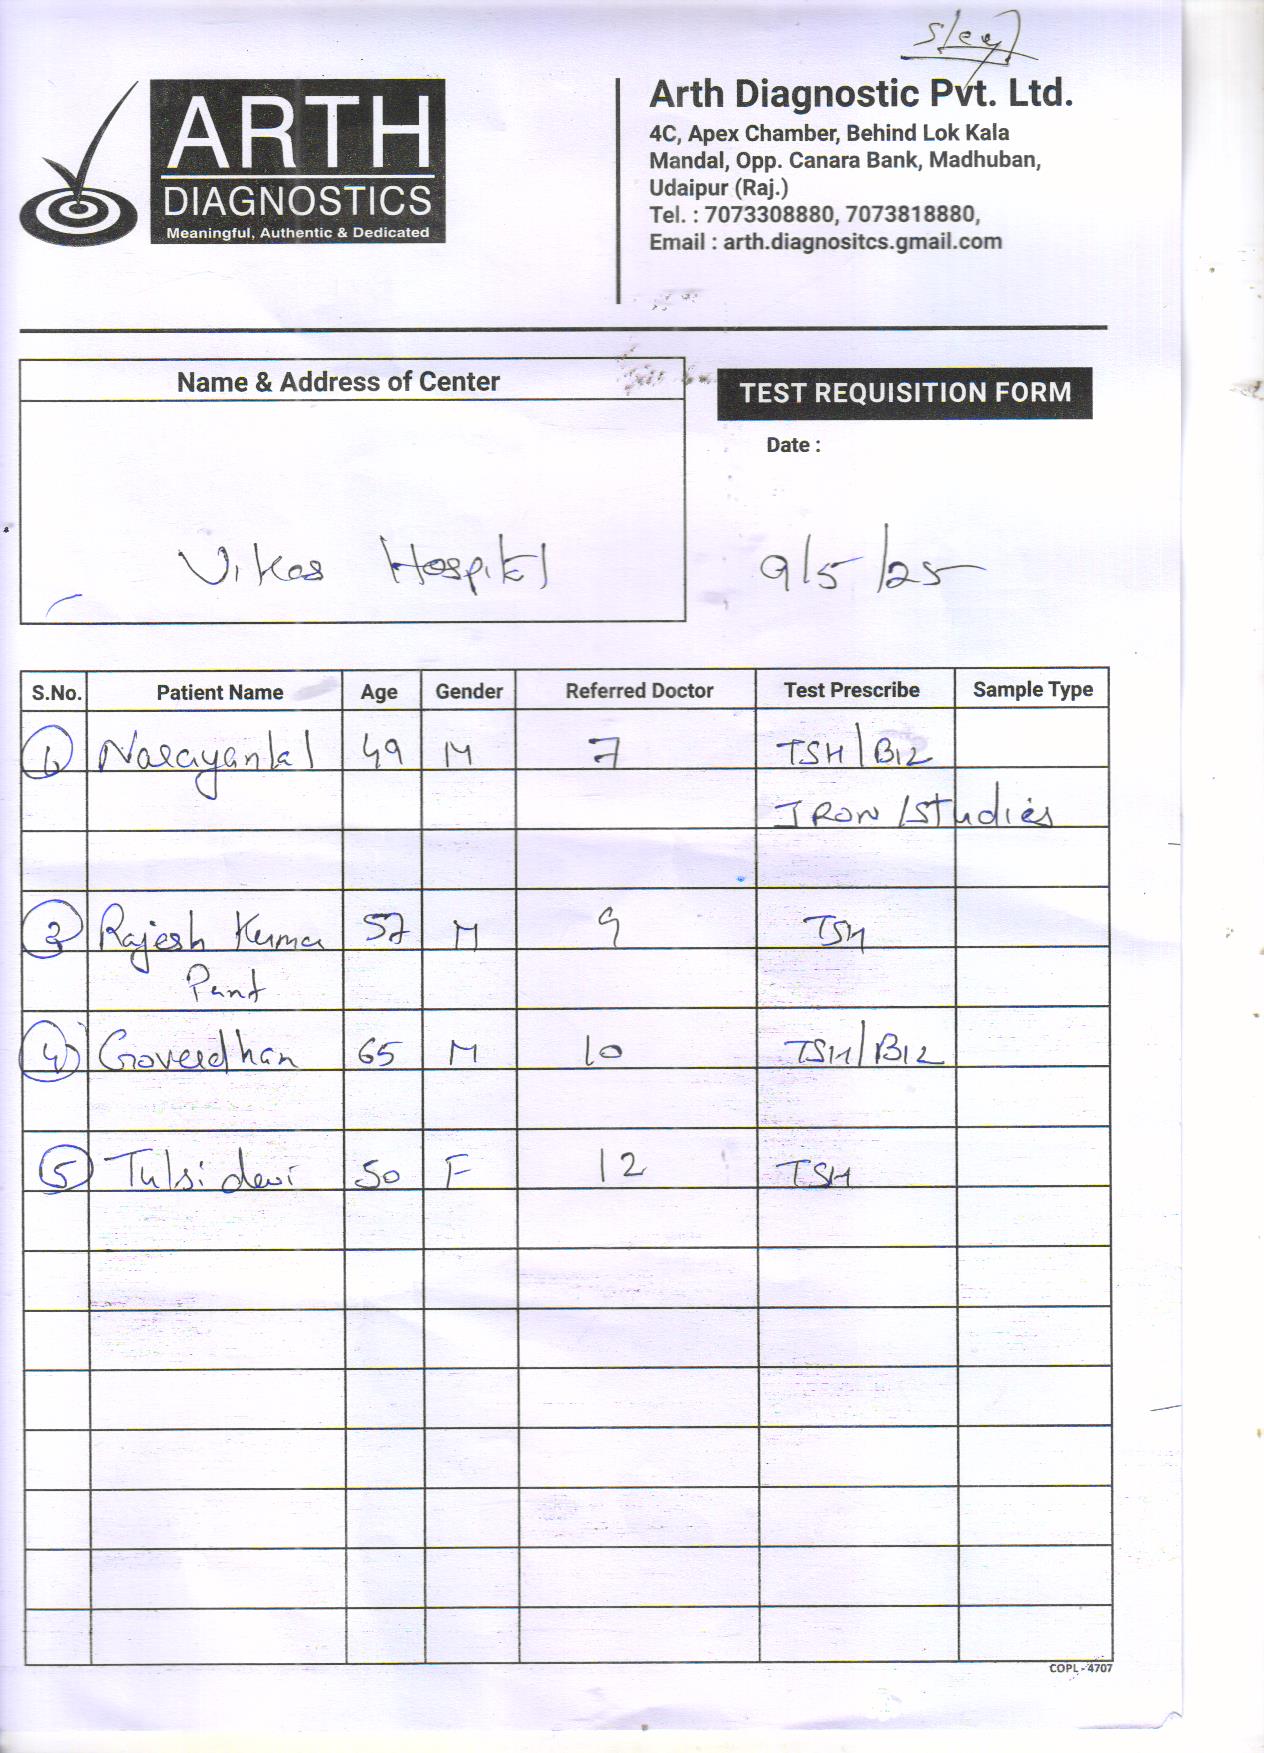 ARTH
DIAGNOSTICS
Meaningful, Authentic & Dedicated
Arth Diagnostic Pvt. Ltd.
4C, Apex Chamber, Behind Lok Kala
Mandal, Opp. Canara Bank, Madhuban,
Udaipur (Raj.)
Tel. : 7073308880, 7073818880,
Email : arth.diagnositcs.gmail.com
Name & Address of Center
Vikas Hospital
TEST REQUISITION FORM
Date :
9/5/25
S.No. Patient Name Age Gender Referred Doctor Test Prescribe Sample Type
Narayanlal 49 M 7 TSH/B12
IRON/Studies
Rajesh Kumar 57 M 9 TSH
Pant
4) Goverdhan 65 M 10 TSH/B12
5 Tulsi devi 50 F 12 TSH
COPL - 4707